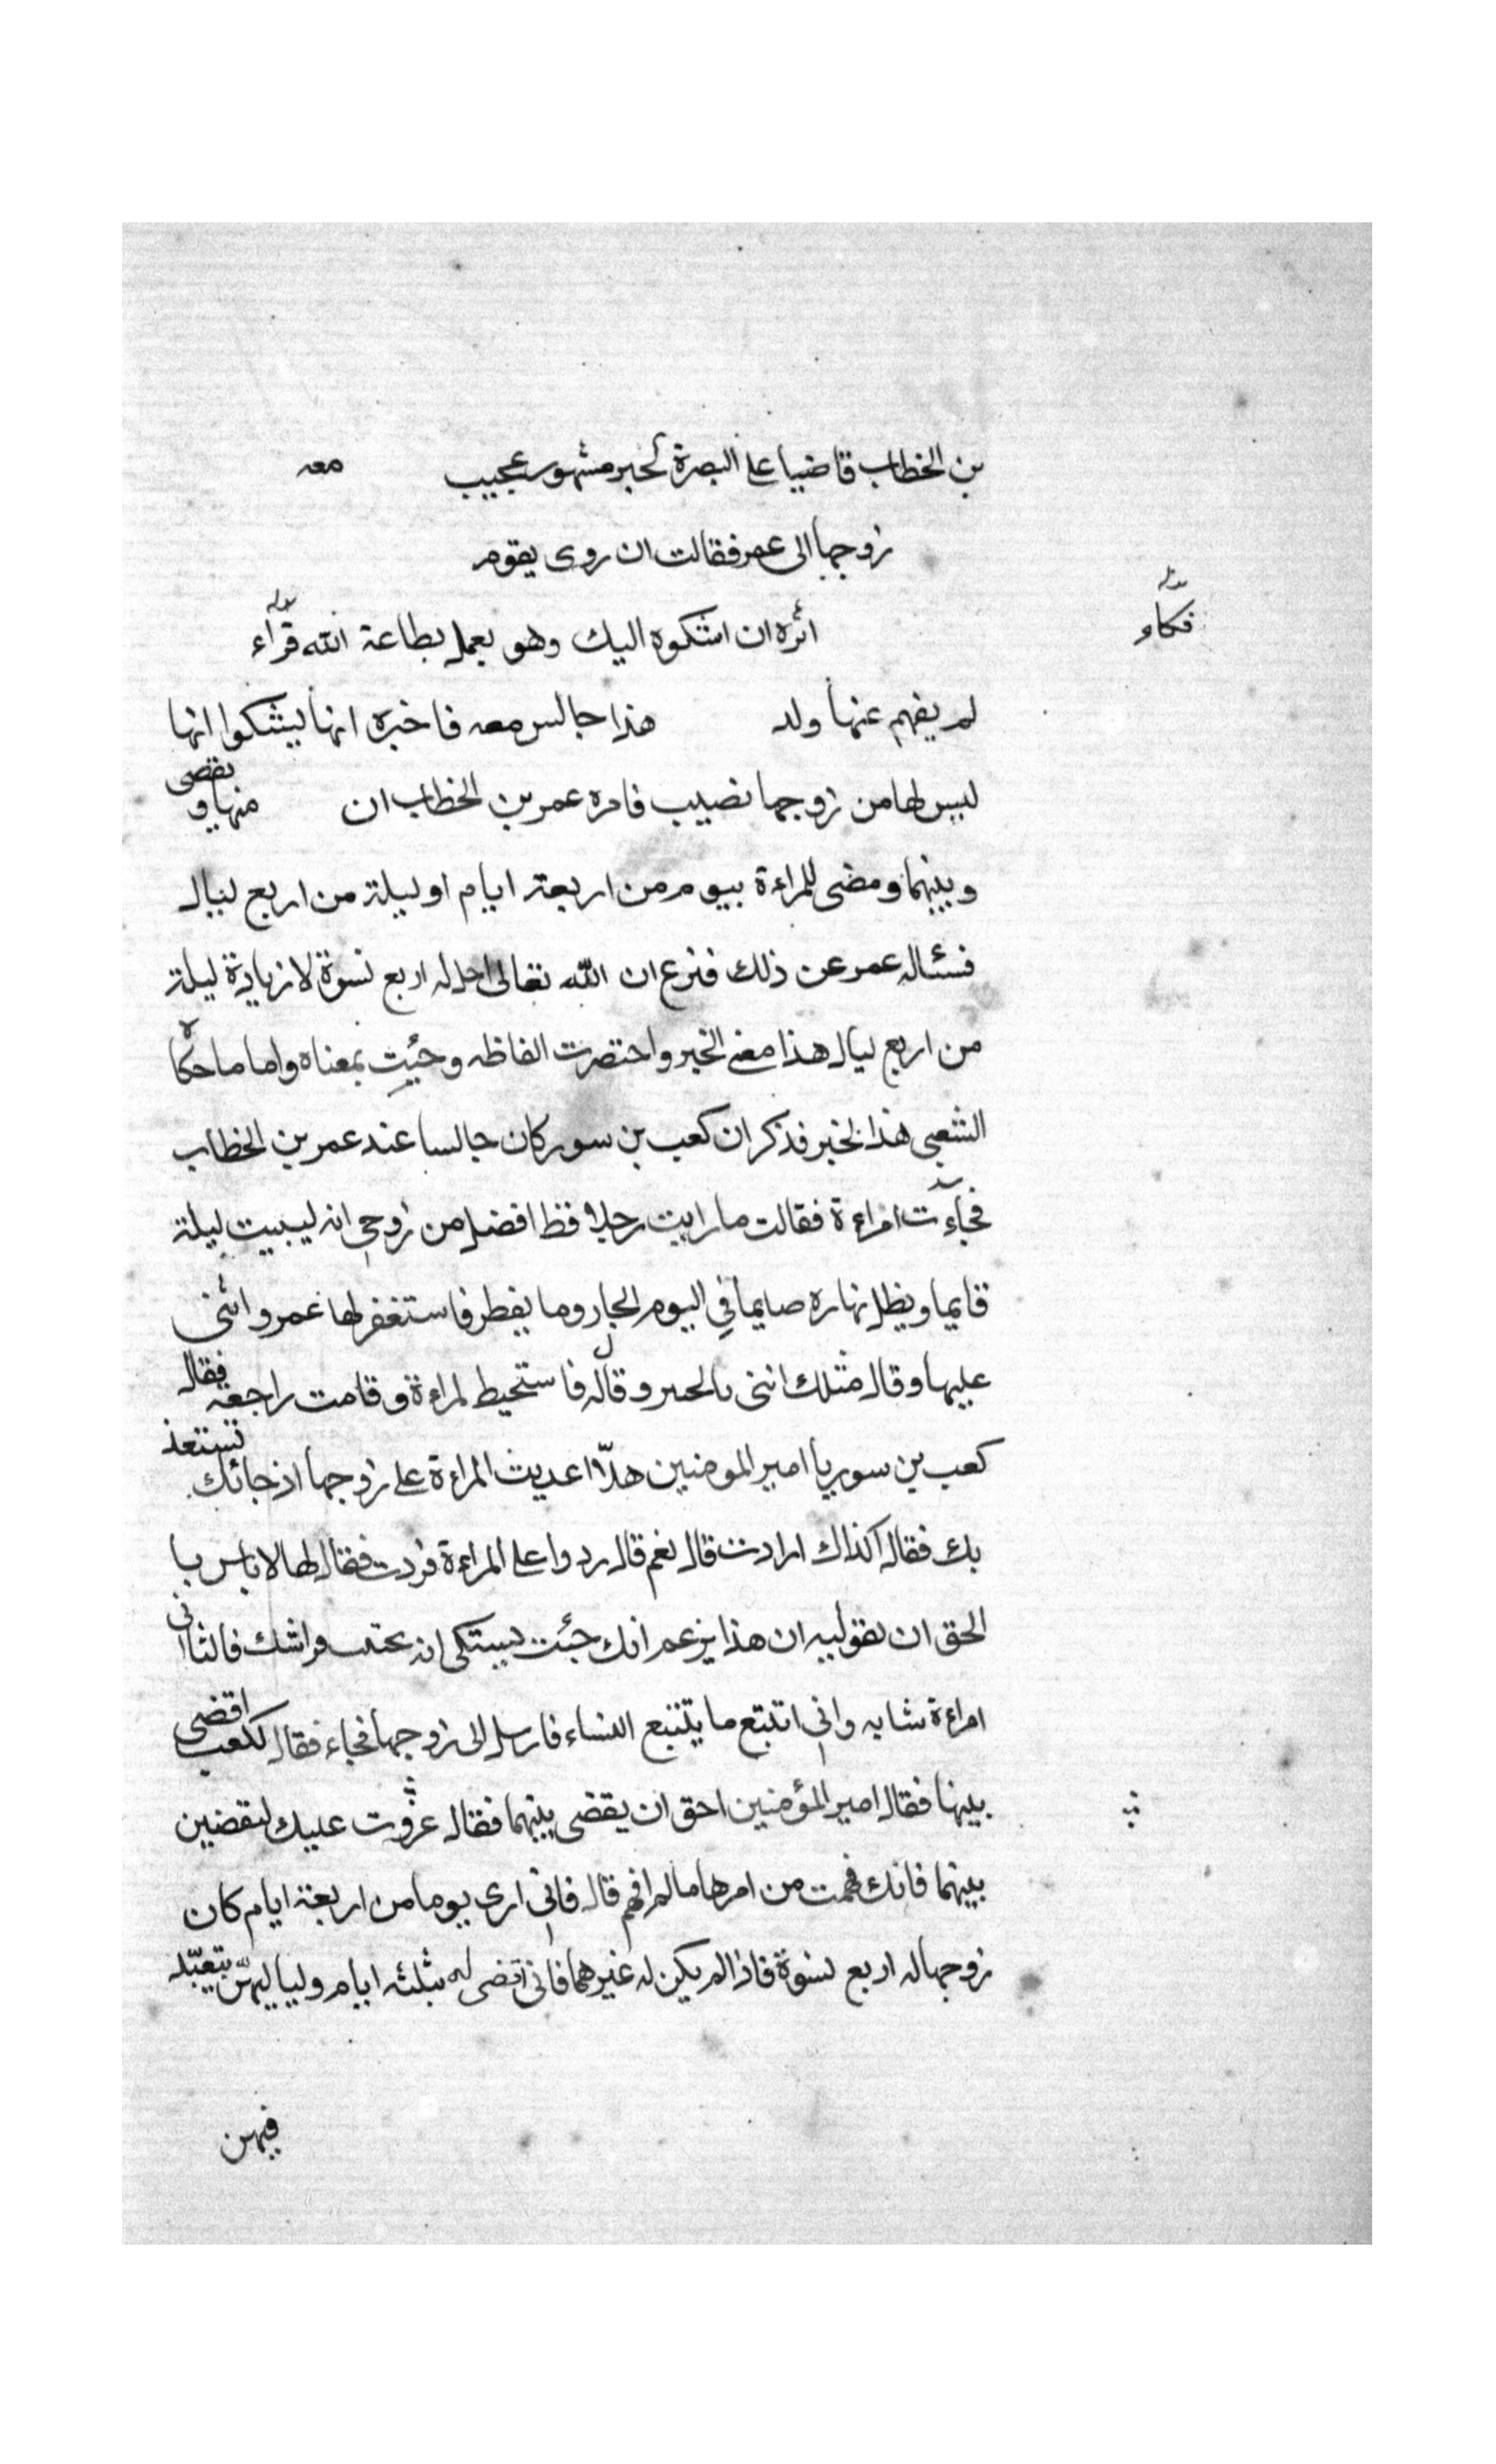 بن الخطاب قاضيا على البصرة لخبر مشهور عجيب معه
زوجها الى عمر فقالت ان روى يقوم
اكره ان اشكوه اليك وهو يعمل بطاعة الله
فكاو
لم يفهم عنها ولد هذا جالس معه فاخبره انها ليشكوا انها
ليس لها من زوجها نصيب فامره عمر بن الخطاب ان يقضى منها و
وبينهما ومضى للمراءة بيوم من اربعة ايام او ليلة من اربع ليال
فسئاله عمر عن ذلك فنزع ان الله تعالى احل له اربع نسوة لا زيادة ليلة
من اربع ليال هذا معنى الخبر واختصرت الفاظه وجئت بمعناه واما ما حكاه
الشعبى هذا الخبر فذكر ان كعب بن سور كان جالسا عند عمر بن الخطاب
فجاءت امراءة فقالت ما رايت رجلا قط افضل من زوجى انه ليبيت ليلة
قايما ويظل نهاره صايما في اليوم الحار وما يفطر فاستغفر لها عمر واثنى
عليها وقال مثلك اثنى بالخير وقاله فاستحيط لمراءة وقامت راجعة فقال
كعب بن سور يا امير المومنين هلا اعديت المراءة على زوجها اذ جائك تستعذ
بك فقال اكذاك ارادت قال نعم قال ردوا على المراءة فردت فقال لها لا باس با
الحق ان تقوليه ان هذا يزعم انك جئت انه فراشك
امراءة شابه وانى اتتبع ما يتتبع النساء فارسل الى زوجها فجاء فقال لكعب اقضى
بينها فقال امير المؤمنين احق ان يقضى بينهما فقال عليك لتقضين
بينهما فانك فهمت من امرها ما لم افهم قال فانى ارى يوما من اربعة ايام كان
زوجها له اربع نسوة فاذا لم يكن له غيرها فانى اقضى له بثلثه ايام ولياليهن يتعبد
فيهن